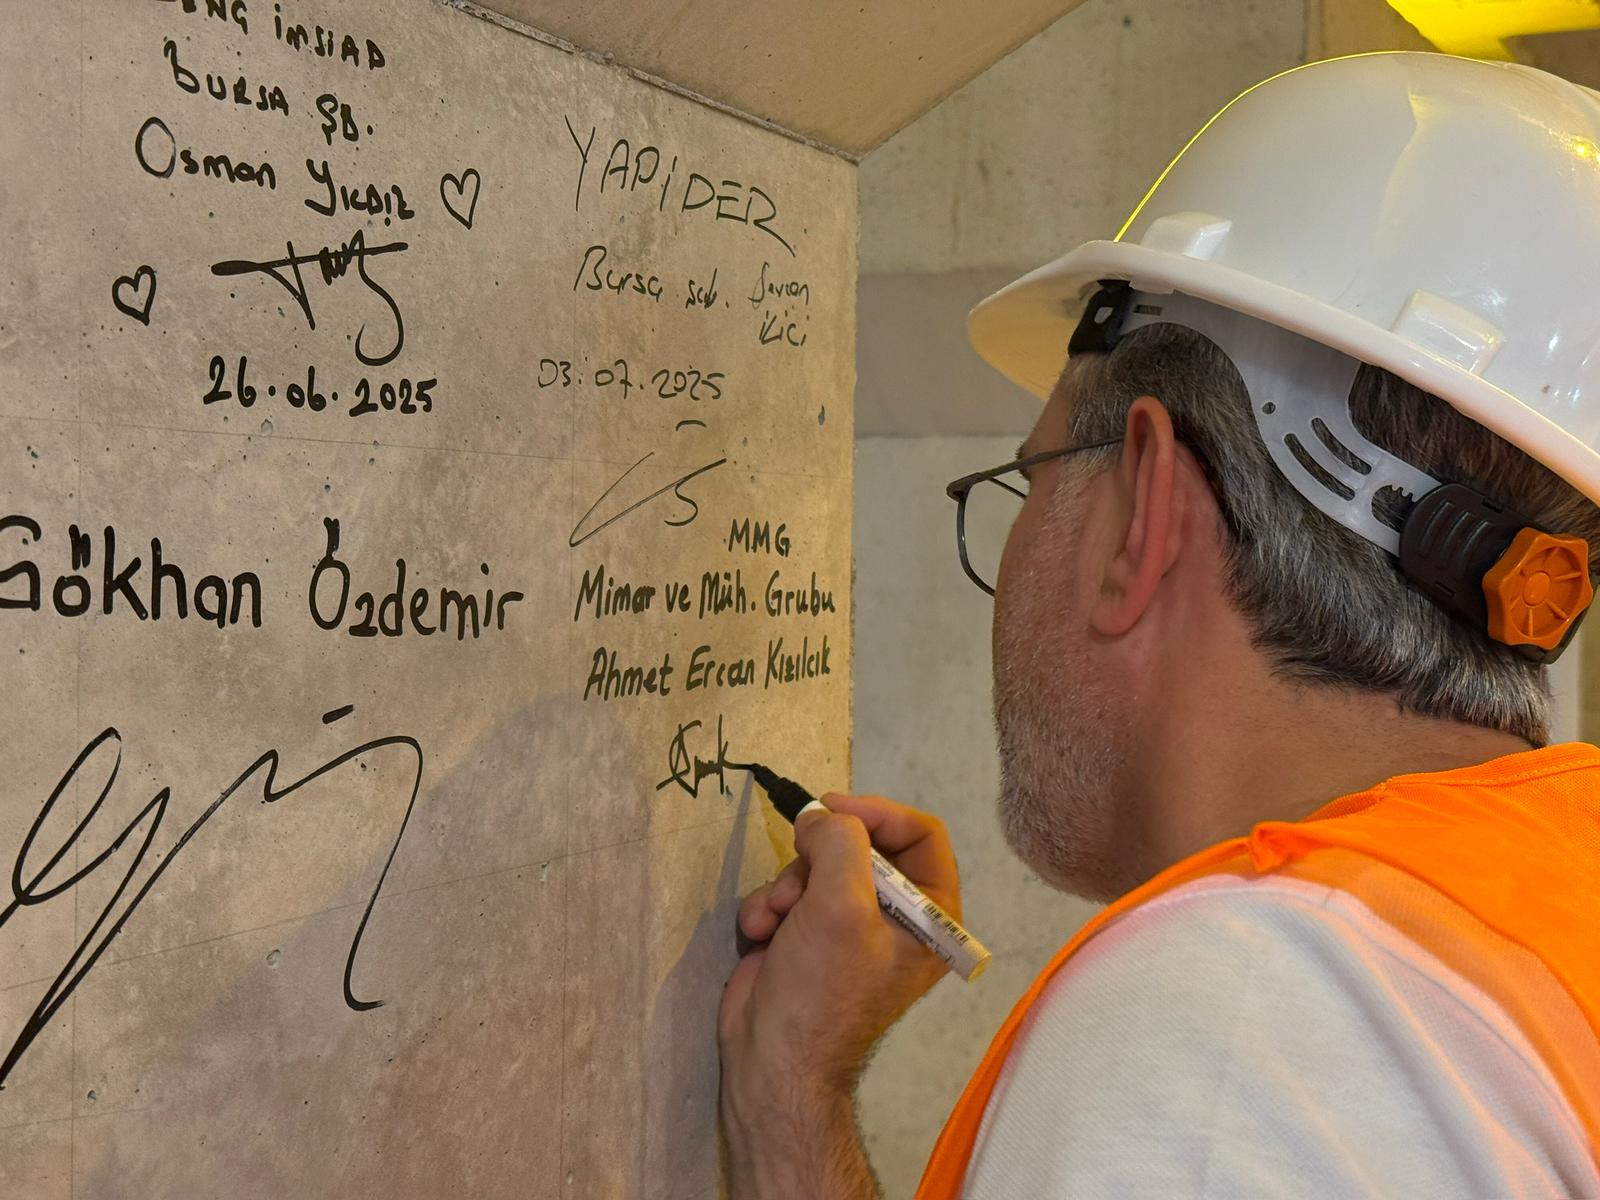 İMSİAD
BURSA ŞB.
Osman YILDIZ
26.06.2025
YAPİDER
Bursa şub.
İKİCİ
03.07.2025
Gökhan Özdemir
MMG
Mimar ve Müh. Grubu
Ahmet Ercan Kızılcık